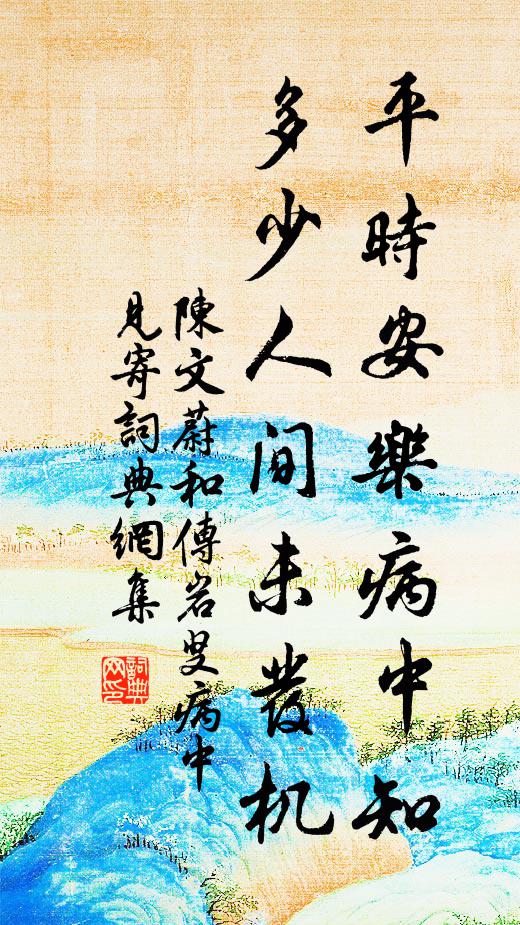 平時安樂病中知
多少人間未發机
陳文蔚和傅岩叟病中
見寄詞典網集
詞典
网印